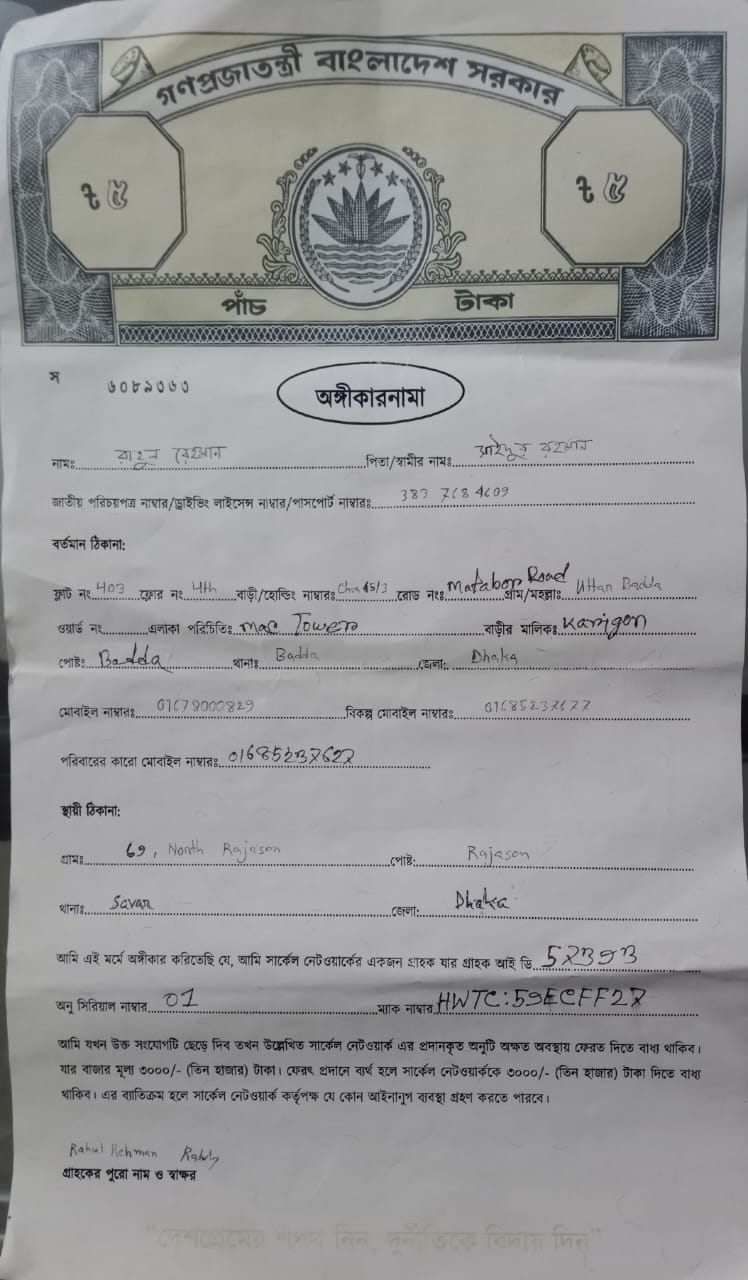 গণপ্রজাতন্ত্রী বাংলাদেশ সরকার
৳ ৫ ৳ ৫
পাঁচ টাকা
স ৬০৮৯৩৬৩
অঙ্গীকারনামা
নামঃ রাহুল রেহমান পিতা/স্বামীর নামঃ রহমান
জাতীয় পরিচয়পত্র নাম্বার/ড্রাইভিং লাইসেন্স নাম্বার/পাসপোর্ট নাম্বারঃ 383 768 4609
বর্তমান ঠিকানা:
ফ্লাট নং 403 ফ্লোর নং 4th বাড়ী/হোল্ডিং নাম্বারঃ Cha 45/3 রোড নংঃ Matabor Road গ্রাম/মহল্লাঃ Uttar Badda
ওয়ার্ড নং এলাকা পরিচিতিঃ Mac Tower বাড়ীর মালিকঃ
পোষ্টঃ Badda থানাঃ Badda জেলা: Dhaka
মোবাইল নাম্বারঃ 01679000829 বিকল্প মোবাইল নাম্বারঃ
পরিবারের কারো মোবাইল নাম্বারঃ
স্থায়ী ঠিকানা:
গ্রামঃ 69, North Rajason পোষ্ট: Rajason
থানাঃ Savar জেলা: Dhaka
আমি এই মর্মে অঙ্গীকার করিতেছি যে, আমি সার্কেল নেটওয়ার্কের একজন গ্রাহক যার গ্রাহক আই ডি 52393
অনু সিরিয়াল নাম্বার 01 ম্যাক নাম্বার HWTC:59ECFF27
আমি যখন উক্ত সংযোগটি ছেড়ে দিব তখন উল্লেখিত সার্কেল নেটওয়ার্ক এর প্রদানকৃত অনুটি অক্ষত অবস্থায় ফেরত দিতে বাধ্য থাকিব।
যার বাজার মূল্য ৩০০০/- (তিন হাজার) টাকা। ফেরৎ প্রদানে ব্যর্থ হলে সার্কেল নেটওয়ার্ককে ৩০০০/- (তিন হাজার) টাকা দিতে বাধ্য
থাকিব। এর ব্যতিক্রম হলে সার্কেল নেটওয়ার্ক কর্তৃপক্ষ যে কোন আইনানুগ ব্যবস্থা গ্রহণ করতে পারবে।
Rahul Rehman
গ্রাহকের পুরো নাম ও স্বাক্ষর
"দেশপ্রেমের শপথ নিন, দুর্নীতিকে বিদায় দিন"